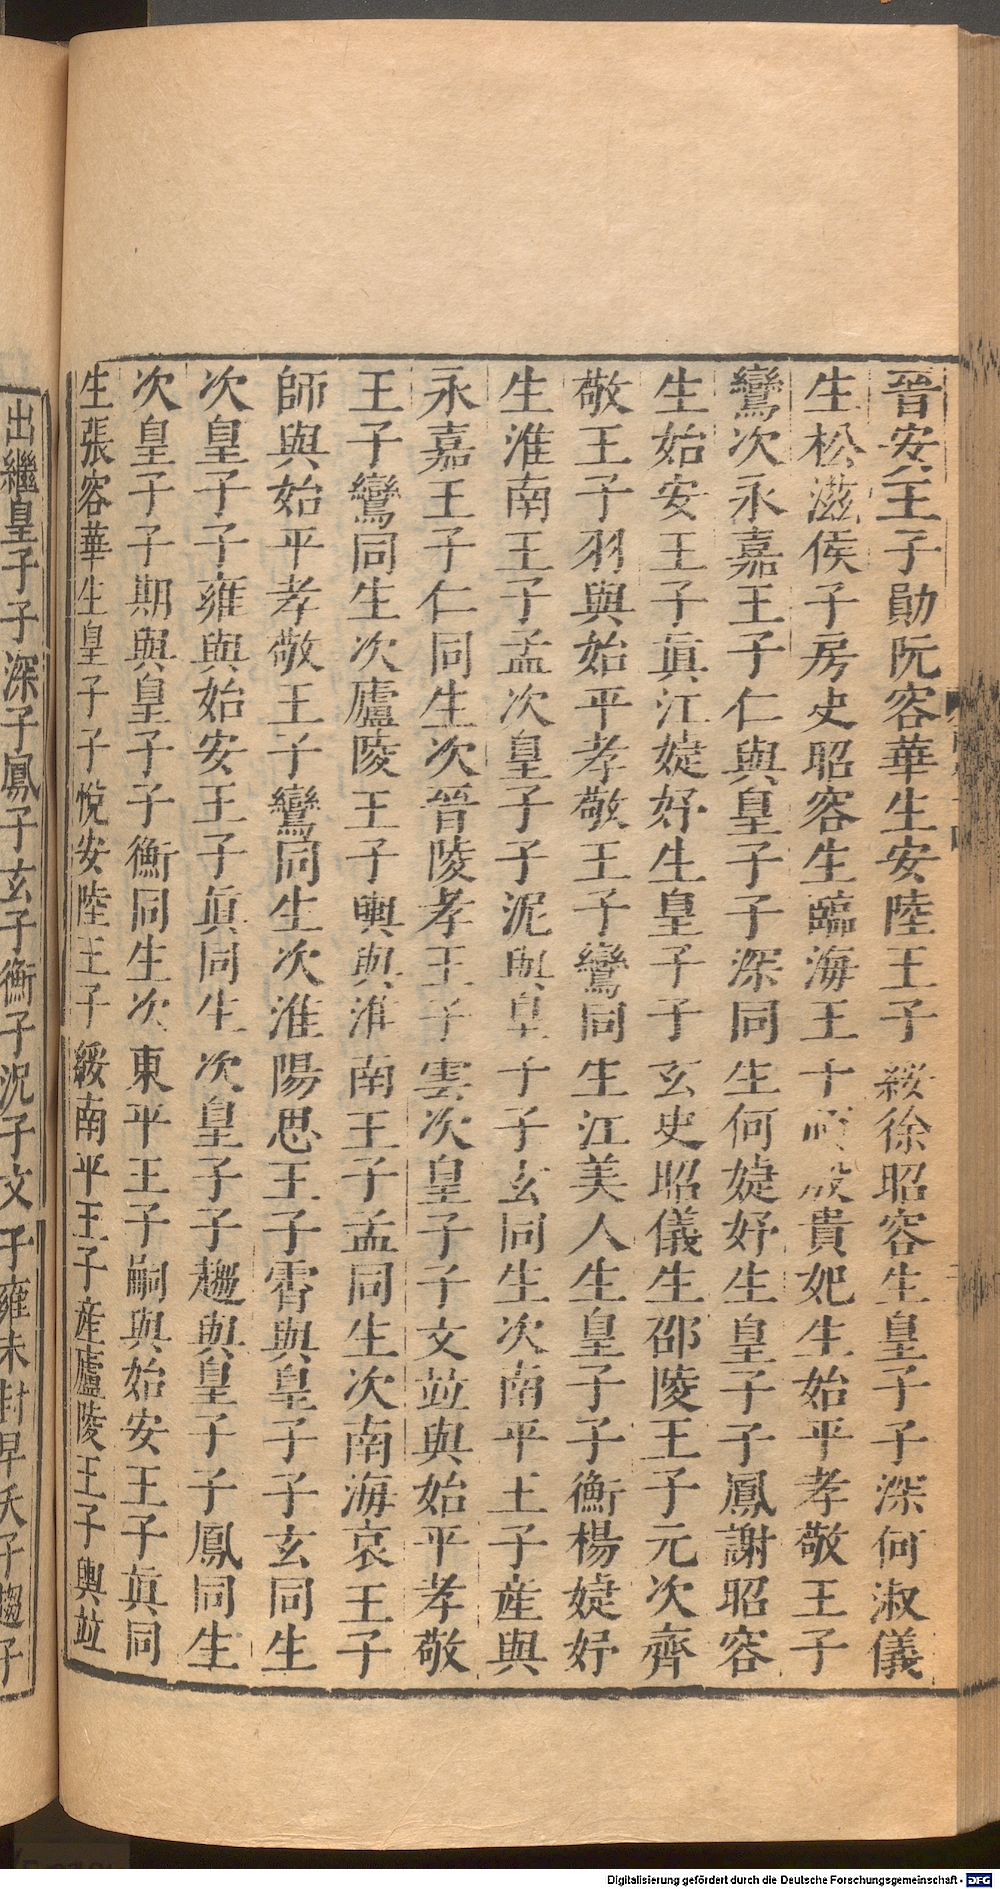 晉安王子勛阮容華生安陸王子綏徐昭容生皇子子深何淑儀
生松滋侯子房史昭容生臨海王子殷貴妃生始平孝敬王子
鸞次永嘉王子仁與皇子子深同生何婕妤生皇子子鳳謝昭容
生始安王子眞江婕妤生皇子子玄史昭儀生邵陵王子元次齊
敬王子羽與始平孝敬王子鸞同生江美人生皇子子衡楊婕妤
生淮南王子孟次皇子子泥與皇子子玄同生次南平王子産與
永嘉王子仁同生次晉陵孝王子雲次皇子子文竝與始平孝敬
王子鸞同生次廬陵王子輿與淮南王子孟同生次南海哀王子
師與始平孝敬王子鸞同生次淮陽思王子霄與皇子子玄同生
次皇子子雍與始安王子眞同生次皇子子趨與皇子子鳳同生
次皇子子期與皇子子衡同生次東平王子嗣與始安王子眞同
生張容華生皇子子悅安陸王子綏南平王子産廬陵王子輿竝
出繼皇子子深子鳳子玄子衡子況子文子雍未封早夭子趨子
Digitalisierung gefördert durch die Deutsche Forschungsgemeinschaft - DFG